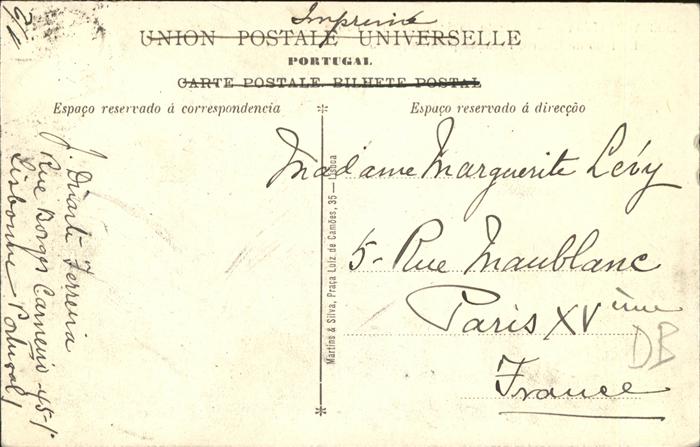 Imprimé
UNION POSTALE UNIVERSELLE
PORTUGAL
CARTE POSTALE. BILHETE POSTAL
Espaço reservado á correspondencia
Espaço reservado á direcção
J. Duarte Ferreira
Rua Borges Carneiro 45-1º
Lisbonne Portugal
Martins & Silva, Praça Luiz de Camões, 35 — Lisboa
Madame Marguerite Levy
5- Rue Maublanc
Paris XVième
France
DB